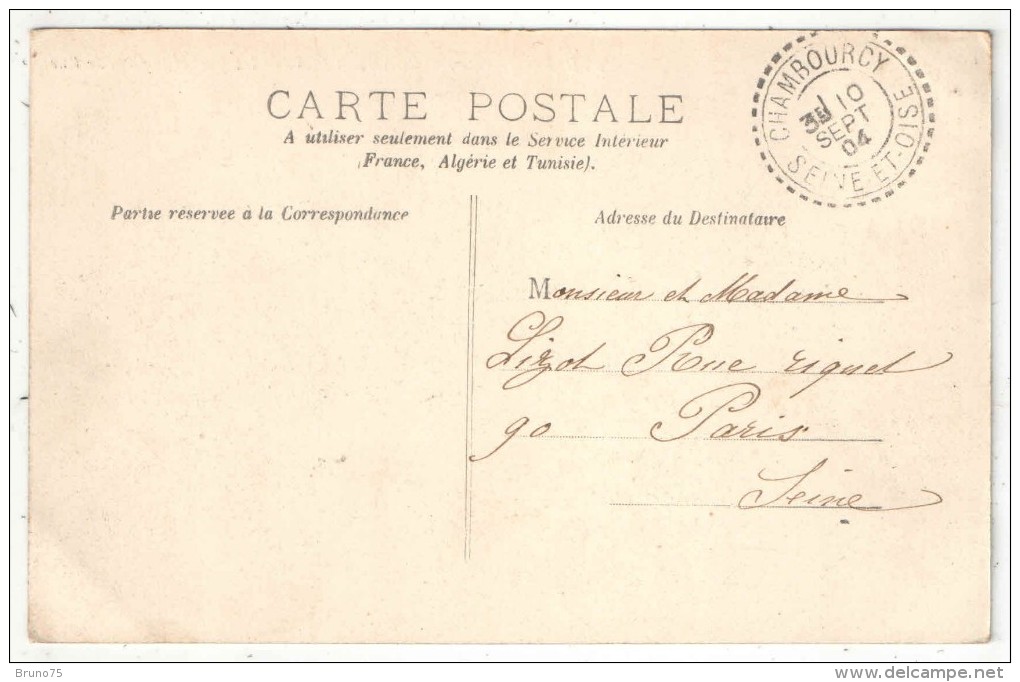 CARTE POSTALE
A utiliser seulement dans le Service Intérieur
(France, Algérie et Tunisie).
CHAMBOURCY
10
SEPT
04
SEINE-ET-OISE
Partie réservée à la Correspondance
Adresse du Destinataire
Monsieur et Madame
Lizot Rue riquet
90 Paris
Seine
Bruno75
www.delcampe.net